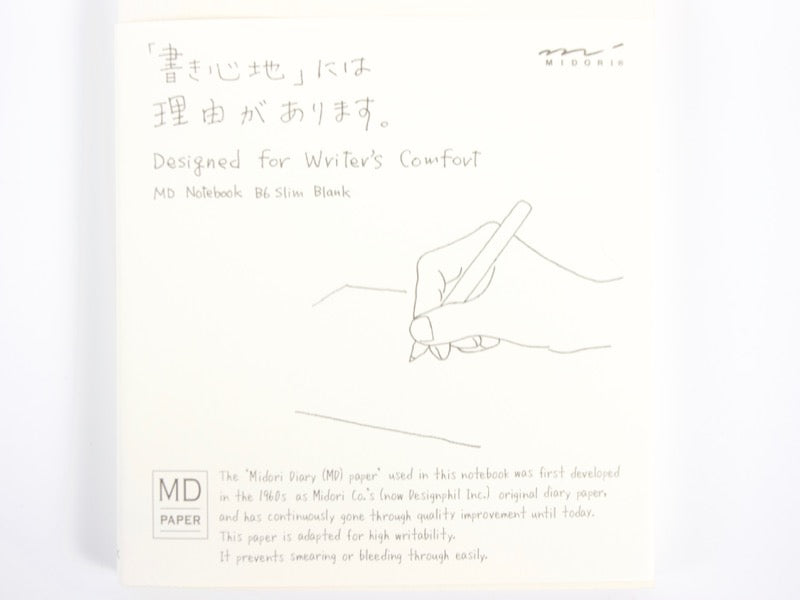 「書き心地」には
理由があります。
MIDORI®
Designed for Writer's Comfort
MD Notebook B6 Slim Blank
MD
PAPER
The "Midori Diary (MD) paper" used in this notebook was first developed
in the 1960s as Midori Co.'s (now Designphil Inc.) original diary paper,
and has continuously gone through quality improvement until today.
This paper is adapted for high writability.
It prevents smearing or bleeding through easily.